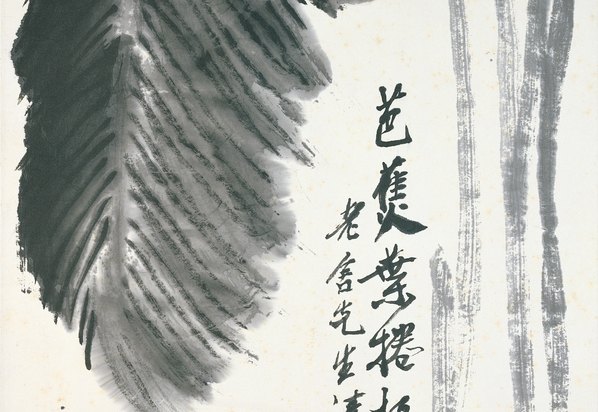 芭蕉葉捲
老舍先生